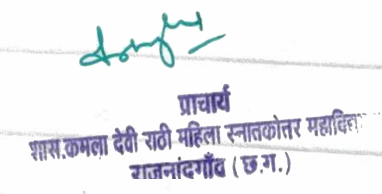 प्राचार्य
शास.कमला देवी राठी महिला स्नातकोत्तर महाविद्या
राजनांदगाँव (छ.ग.)